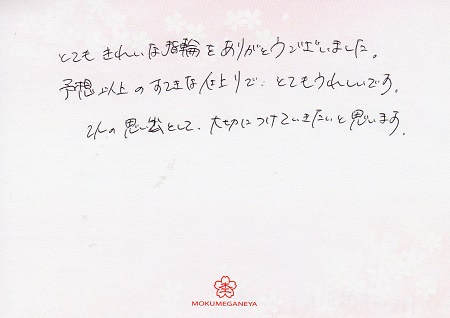 とてもきれいな指輪をありがとうございました。
予想以上のすてきな仕上りで、とてもうれしいです。
2人の思い出として、大切につけていきたいと思います。
MOKUMEGANEYA